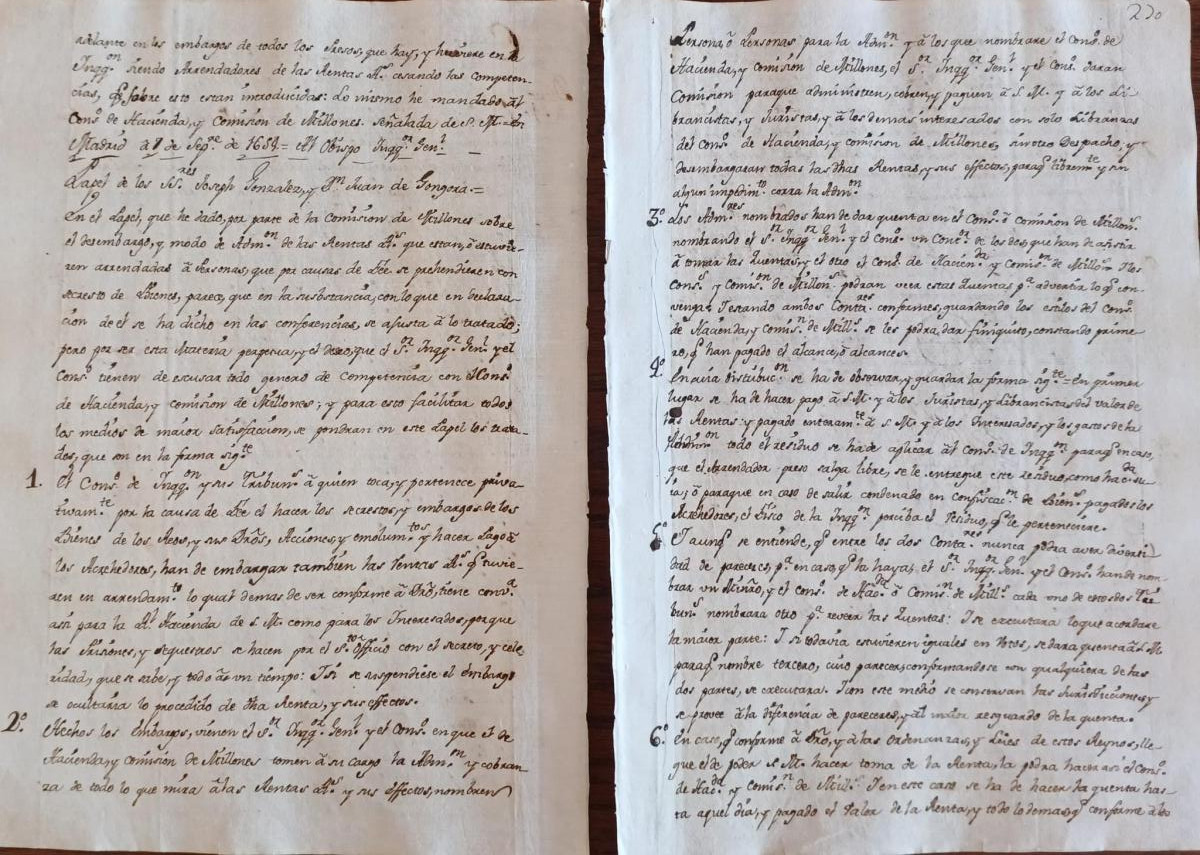 adelante en los embargos de todos los Presos, que hay, y huviere en la
Inqq.on siendo Arrendadores de las Rentas R.s cesando las competen-
cias, q̃ sobre esto estan introducidas: Lo mismo he mandado al
Cons.o de Hacienda, y Comision de Millones. Señalada de S. M. en
Madrid a de Sep.re de 1654 = Al Obispo Inqq.or Gen.l
Papel de los SS.res Joseph Gonzalez, y D.n Juan de Gongora. =
En el Papel, que he dado, por parte de la Comision de Millones sobre
el desembargo, y modo de Adm.on de las Rentas R.s que estan, ò estuvie-
ren arrendadas à Personas, que por causas de Fee se prehendieren con
secresto de Bienes, parece, que en la substancia, con lo que en declara-
cion de el se ha dicho en las conferencias, se ajusta à lo tratado;
pero por ser esta Materia perpetua, y el deseo, que el S.or Inqq.or Gen.l y el
Cons.o tienen de escusar todo genero de competencia con el Cons.o
de Hacienda, y comision de Millones; y para esto facilitar todos
los medios de maior satisfaccion, se pondran en este Papel los trata-
dos, que son en la forma sig.te
1. El Cons.o de Inqq.on y sus Tribun.s à quien toca, y pertenece priva-
tivam.te por la causa de Fee el hacer los secrestos, y embargos de los
Bienes de los Reos, y sus Dr̃os, Acciones, y emolum.tos y hacer Pago à
los Acrehedores, han de embargar tambien las Rentas R.s q̃ tuvie-
ren en arrendam.to lo qual demas de ser conforme à Dr̃o, tiene conv.a
asi para la R.l Hacienda de S. M. como para los Interesados, porque
las Prisiones, y sequestros se hacen por el S.to Officio con el secreto, y cele-
ridad, que se sabe, y todo à un tiempo: I si se suspendiese el embargo
se ocultaria lo procedido de dha Renta, y sus effectos.
2.o Hechos los Embargos, vienen el S.or Inqq.or Gen.l y el Cons.o en que el de
Hacienda, y comision de Millones tomen à su cargo la Adm.on y cobran-
za de todo lo que mira à las Rentas R.s y sus effectos, nombren
230
Persona, ò Personas para la Adm.on y à los que nombrare el Cons.o de
Hacienda, y Comision de Millones, el S.or Inqq.or Gen.l y el Cons.o daran
Comision para que administren, cobren, y paguen à S. M. y à los Li-
brancistas, y Juristas, y à los demas interesados con solo Libranzas
del Cons.o de Hacienda, y comision de Millones, sin otro Despacho, y
desembargaran todas las dhas Rentas, y sus effectos, paraq̃ librem.te y sin
algun impedim.to corra la Adm.on
3.o Los Adm.res nombrados han de dar quenta en el Cons.o ò comision de Millon.s
nombrando el S.or Inqq.or Gen.l y el Cons.o un Cont.or de los dos, que han de asistir
à tomar las Quentas, y el otro el Cons.o de Hacien.da y Comis.on de Millon.s I los
Cons.s y Comis.on de Millon.s podran veer estas Quentas p.a advertir lo q̃ con-
venga: I estando ambos Conta.res conformes, guardando los estilos del Cons.o
de Hacienda, y Comis.n de Mill.s se les podra dar finiquito, constando prime-
ro, q̃ han pagado el alcance, ò alcances.
4.o En cuia distribuc.on se ha de observar, y guardar la forma sig.te = En primer
lugar se ha de hacer pago à S. M. y à los Juristas, y Librancistas del valor de
las Rentas: y pagado enteram.te à S. M. y à los Interesados, y los gastos de la
Adm.on todo el residuo se ha de aplicar al Cons.o de Inqq.on paraq̃ en caso,
que el Arrendador preso salga libre, se le entregue este residuo, como hac.da su-
ia; ò paraque en caso de salir condenado en confiscac.n de Bien.s pagados los
Acrehedores, el Fisco de la Inqq.on perciba el residuo, q̃ le perteneciere.
5.o I aunq̃ se entiende, q̃ entre los dos Conta.res nunca podra aver diversi-
dad de pareceres, p.a en caso, q̃ la haya, el S.or Inqq.or Gen.l y el Cons.o han de nom-
brar un Minr̃o, y el cons.o de Hac.da ò Comis.n de Mill.s cada uno de estos dos Tri-
bun.s nombrara otro p.a reveer las Quentas: I se executara lo que acordare
la maior parte: I si todavia estuvieren iguales en votos, se dara quenta à S. M.
paraq̃ nombre tercero, cuio parecer, conformandose con qualquiera de las
dos partes, se executara. I con este medio se conservan las Jurisdicciones, y
se provee à la diferencia de pareceres, y al maior resguardo de la quenta.
6.o En caso, q̃ conforme à Dr̃o, y à las Ordenanzas, y Leies de estos Reynos, lle-
gue el de poder S. M. hacer toma de la Renta, la podra hacer asi el Cons.o
de Hac.da y Comis.n de Mill.s I en este caso se ha de hacer la quenta has-
ta aquel dia, y pagado el valor de la Renta, y todo lo demas, q̃ conforme à los